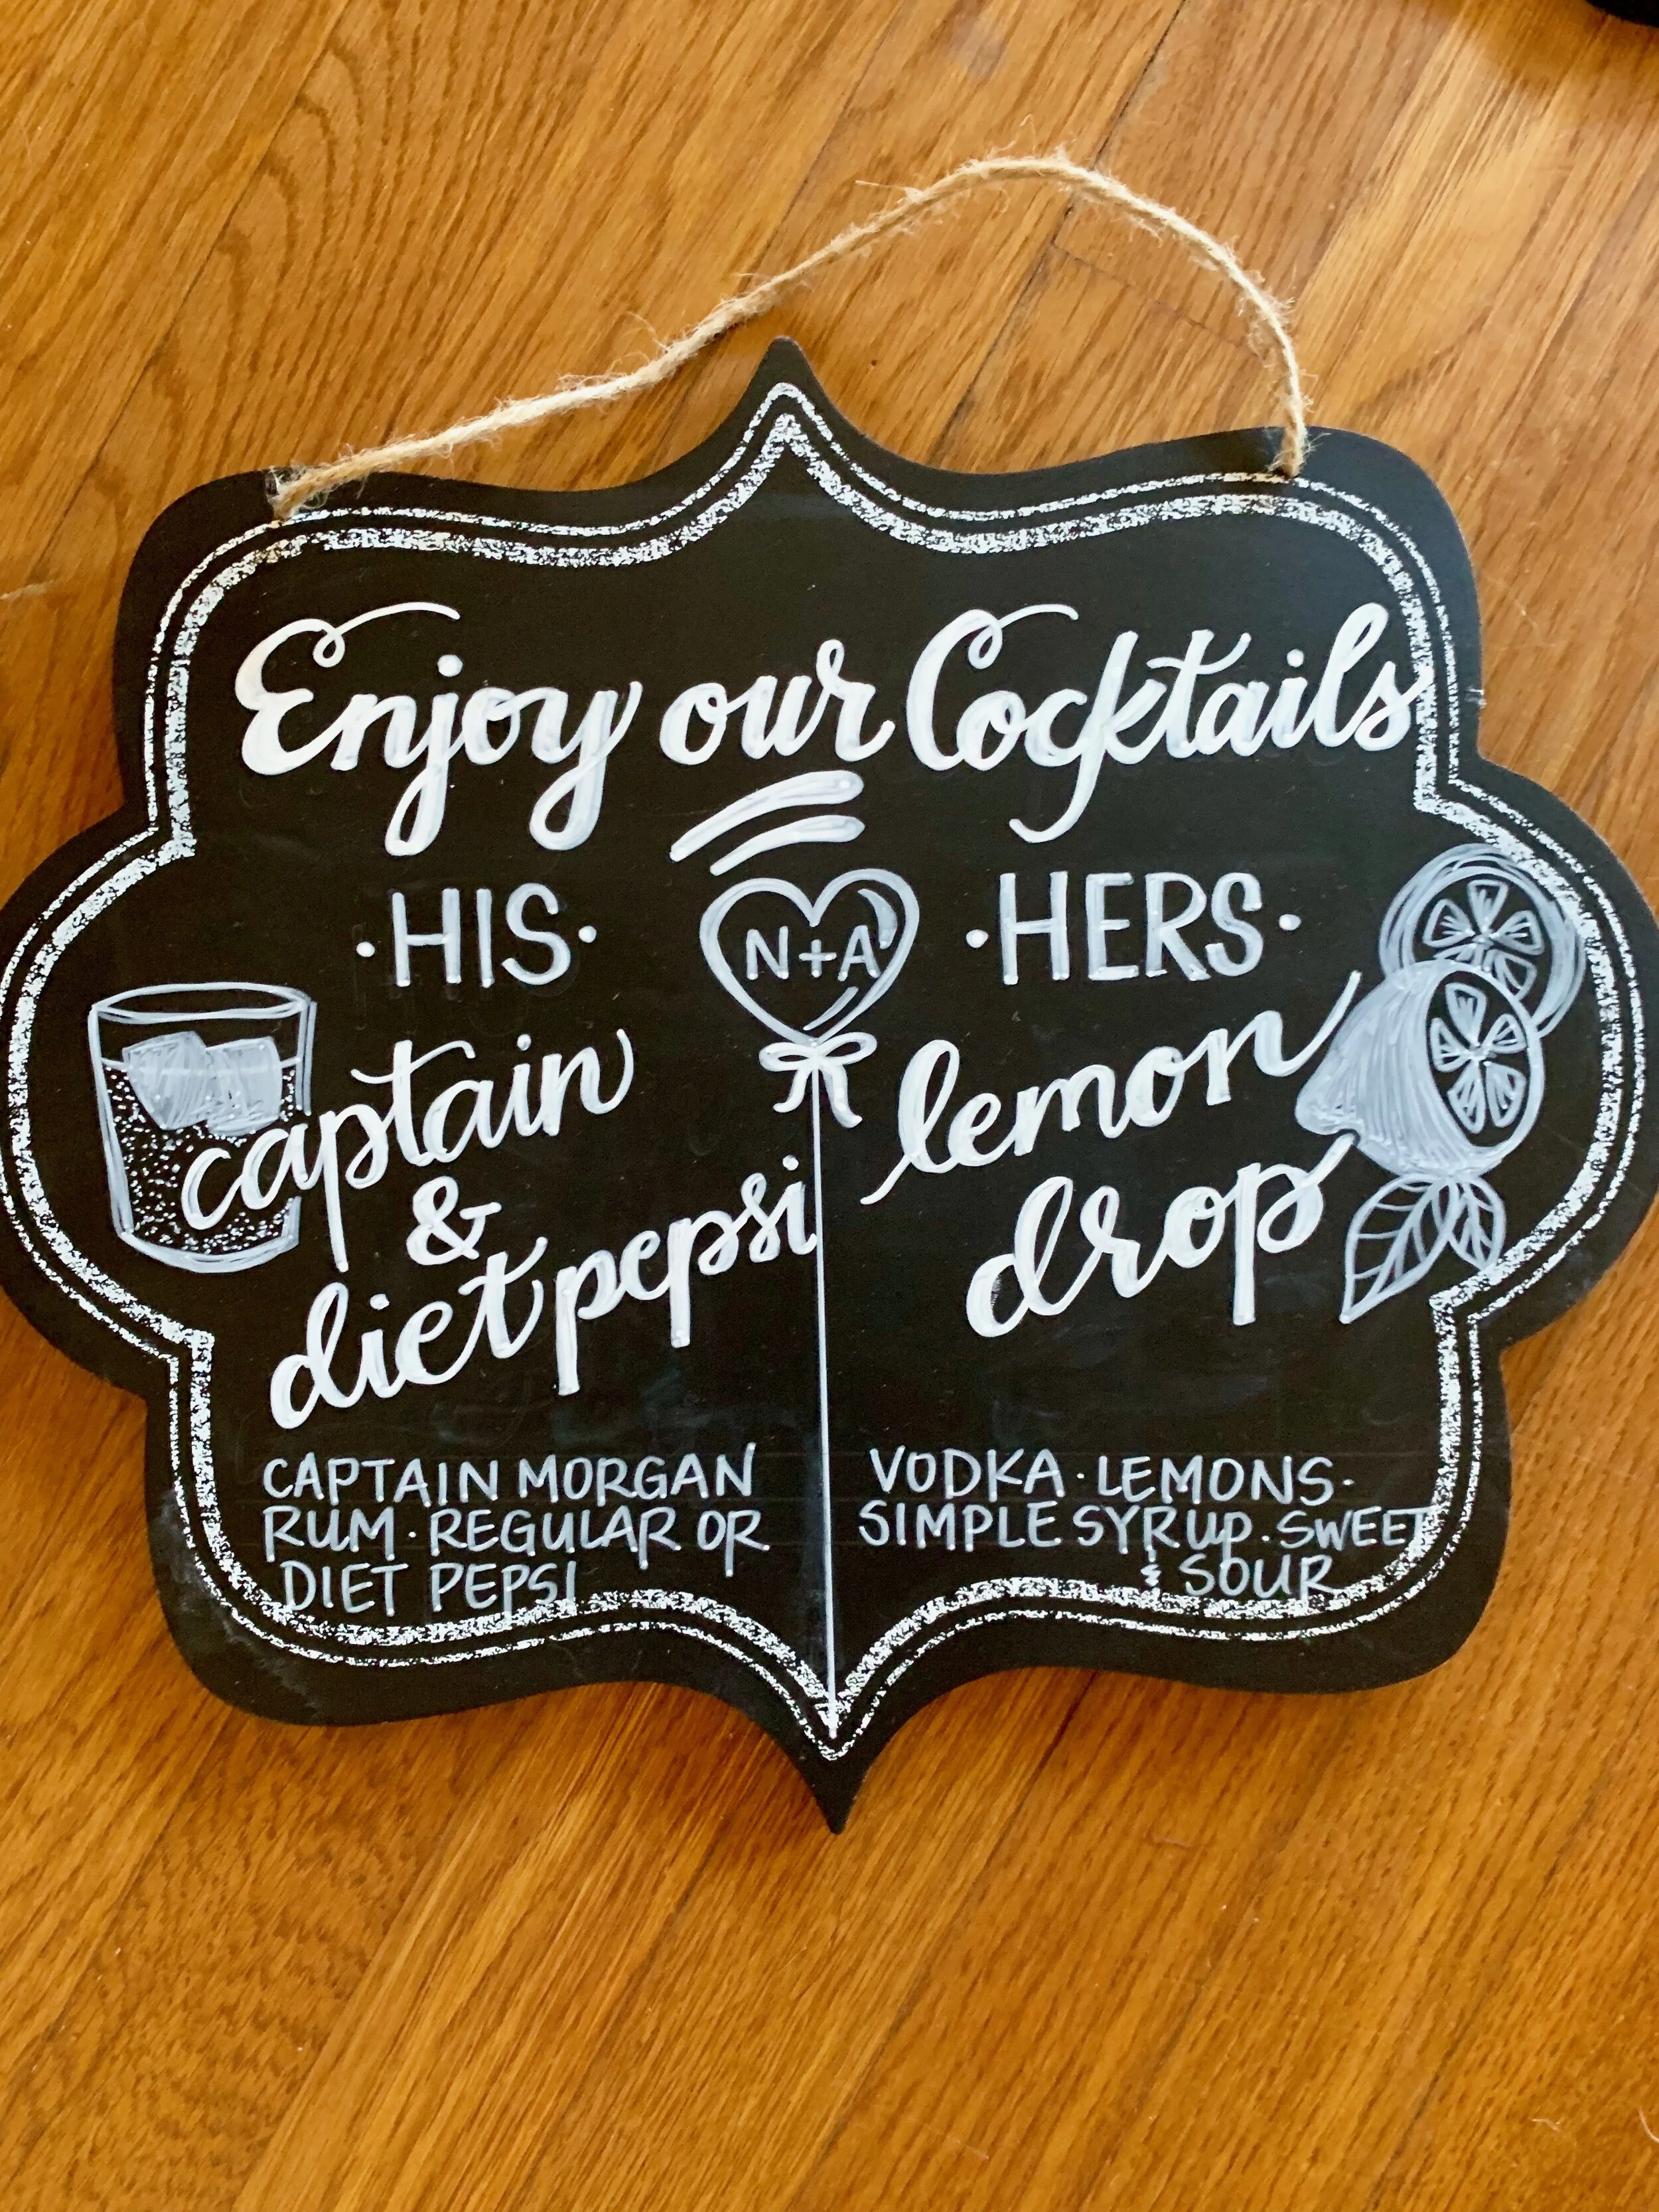 Enjoy our Cocktails
·HIS·
N+A
·HERS·
captain
&
diet pepsi
lemon
drop
CAPTAIN MORGAN
RUM · REGULAR OR
DIET PEPSI
VODKA · LEMONS ·
SIMPLE SYRUP · SWEET
& SOUR